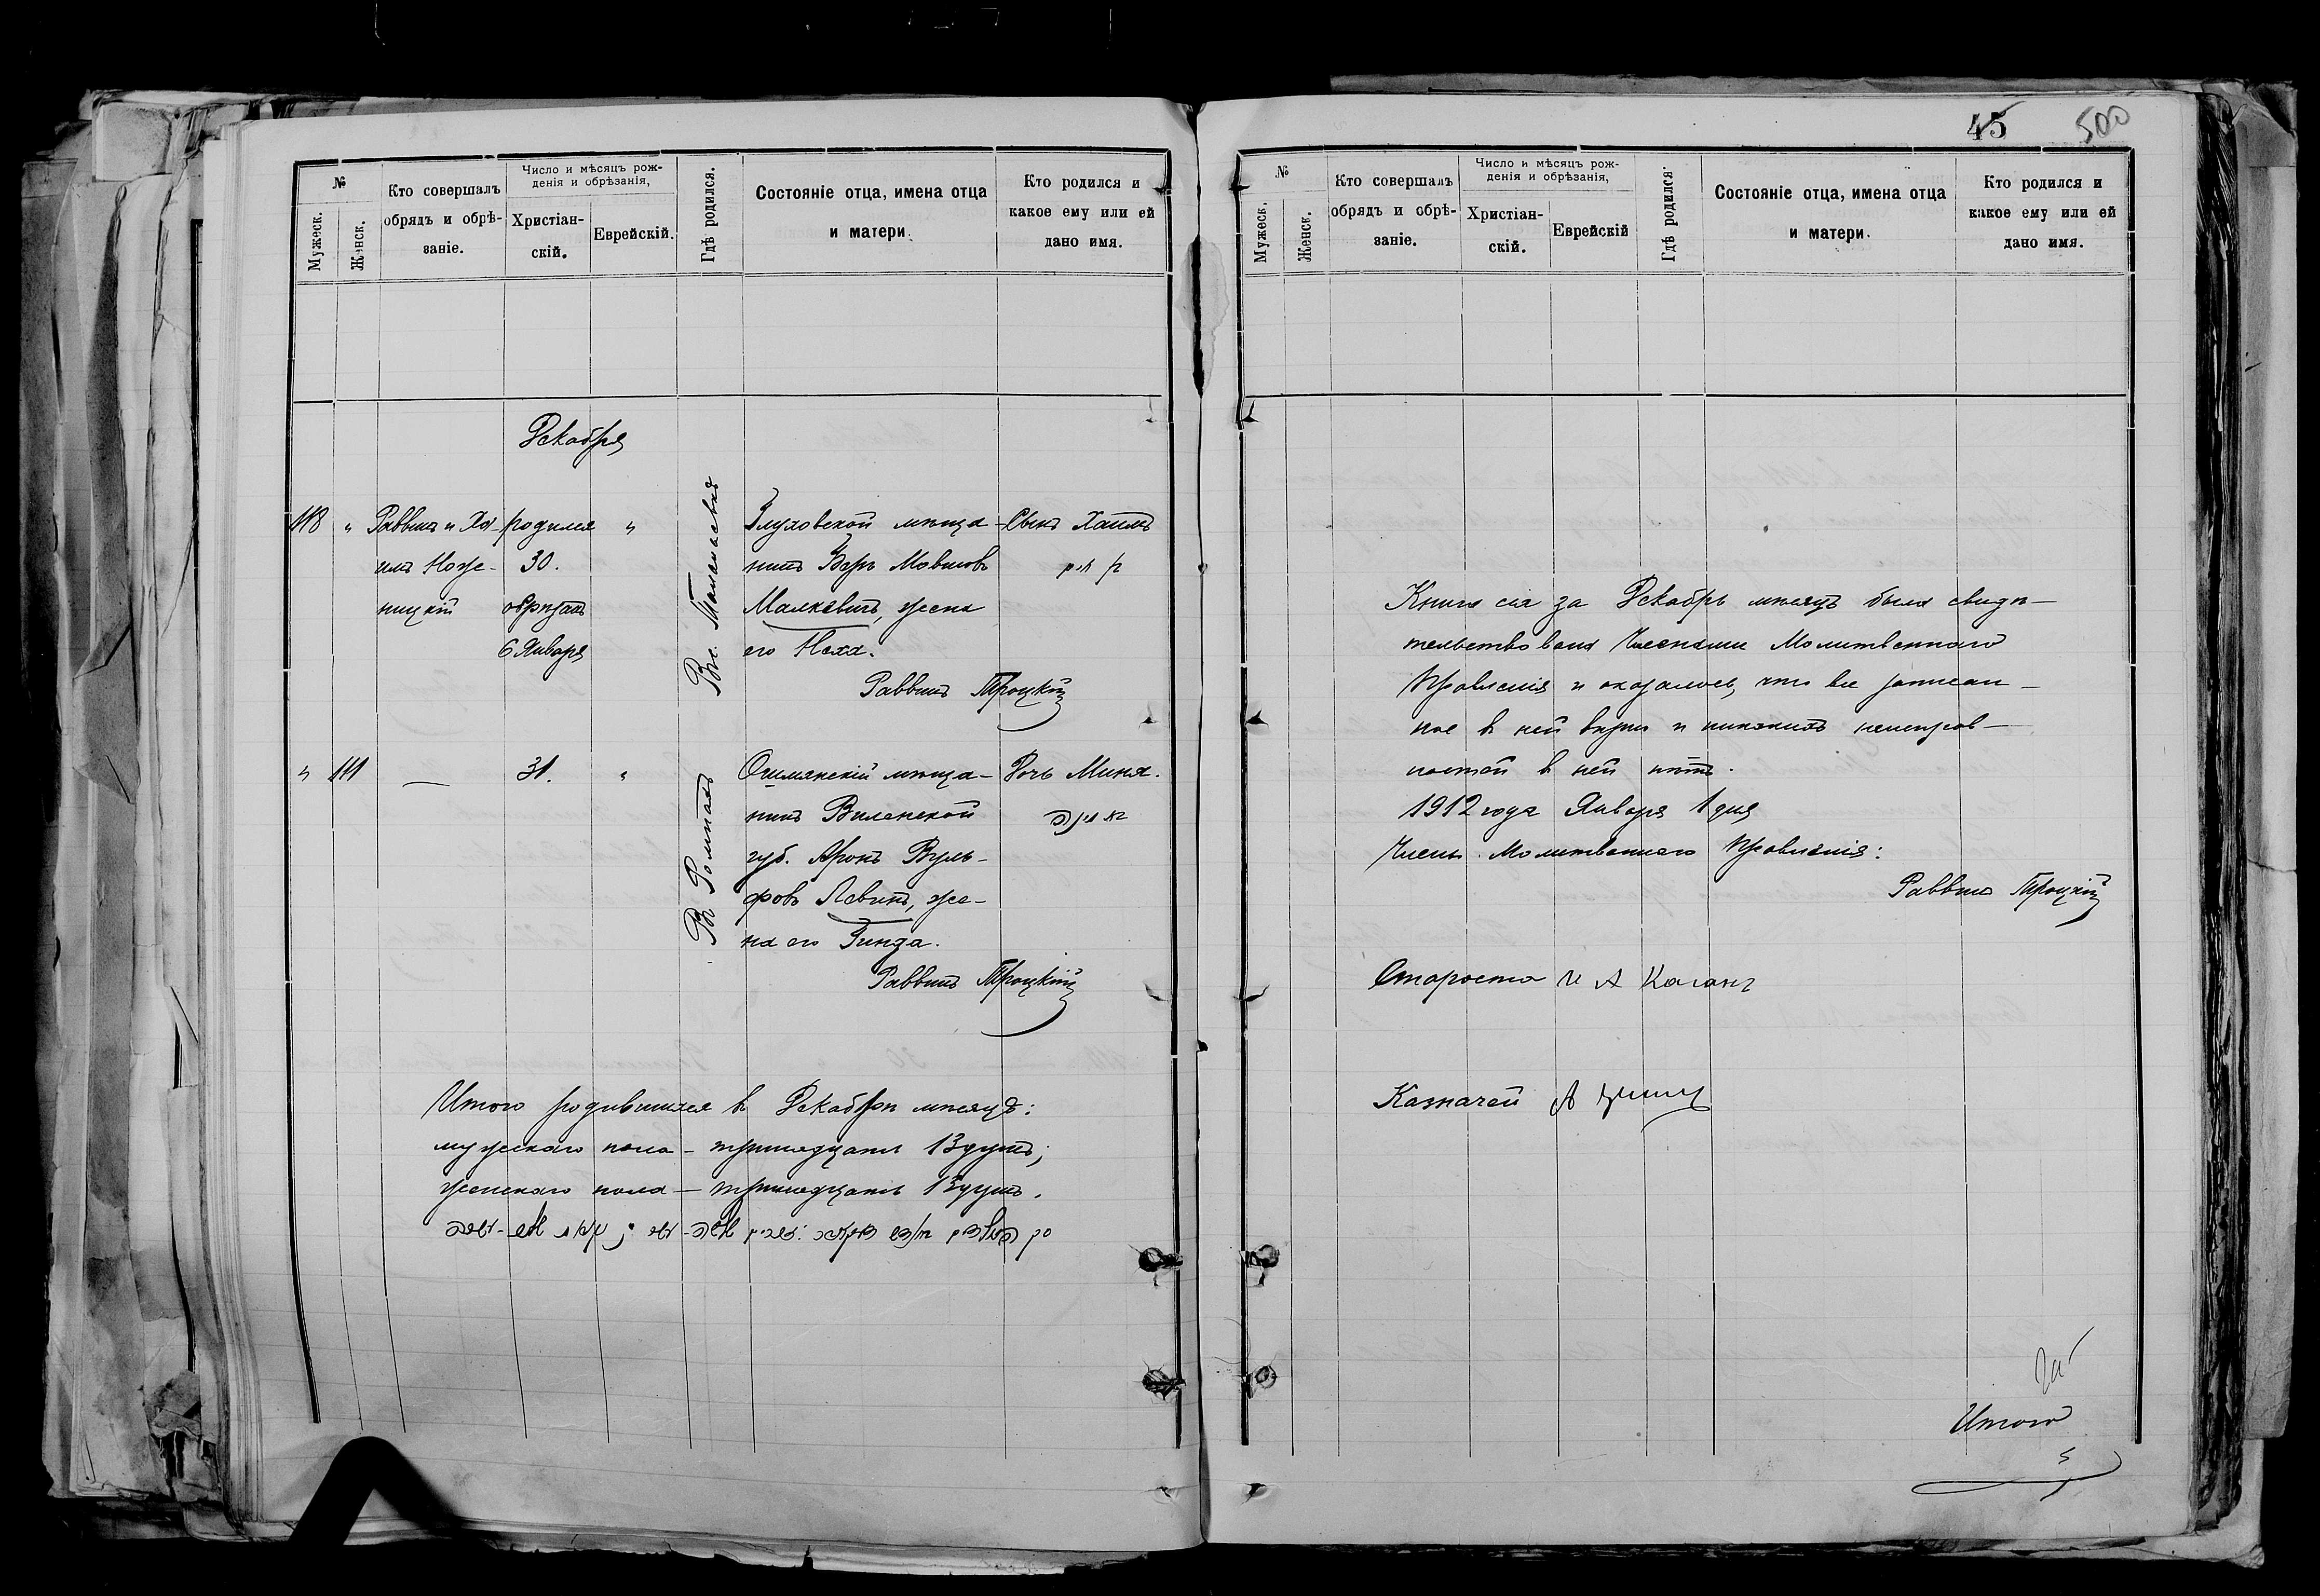 45 500
№
Мужеск.
Женск.
Кто совершалъ
обрядъ и обрѣ-
заніе.
Число и мѣсяцъ рож-
денія и обрѣзанія,
Христіан-
скій.
Еврейскій.
Гдѣ родился.
Состояніе отца, имена отца
и матери.
Кто родился и
какое ему или ей
дано имя.
Декабря
118 " Раввинъ и Ха-
имъ Ноже-
ницкій
родился
30.
обрѣзанъ
6 Января
"
Глуховской мѣща-
нинъ Беръ Мовшовъ
Малкевичъ, жена
его Неха.
Сынъ Хаимъ
Раввинъ Троцкій
" 111 — 31. "
Въ Ромнахъ
Ошмянскій мѣща-
нинъ Виленской
губ. Аронъ Вуль-
фовъ Левинъ, же-
на его Гинда.
Дочь Миня.
Раввинъ Троцкій
Итого родившихся въ Декабрѣ мѣсяцѣ:
мужескаго пола — тринадцать 13 душъ;
женскаго пола — тринадцать 13 душъ.
№
Мужеск.
Женск.
Кто совершалъ
обрядъ и обрѣ-
заніе.
Число и мѣсяцъ рож-
денія и обрѣзанія,
Христіан-
скій.
Еврейскій
Гдѣ родился.
Состояніе отца, имена отца
и матери.
Кто родился и
какое ему или ей
дано имя.
Книга сія за Декабрь мѣсяцъ была свидѣ-
тельствована Членами Молитвеннаго
Правленія и оказалось, что все записан-
ное въ ней вѣрно и никакихъ неисправ-
ностей въ ней нѣтъ.
1912 года Января 1 дня
Члены Молитвеннаго Правленія:
Раввинъ Троцкій
Староста И А Каганъ
Казначей А
Итого